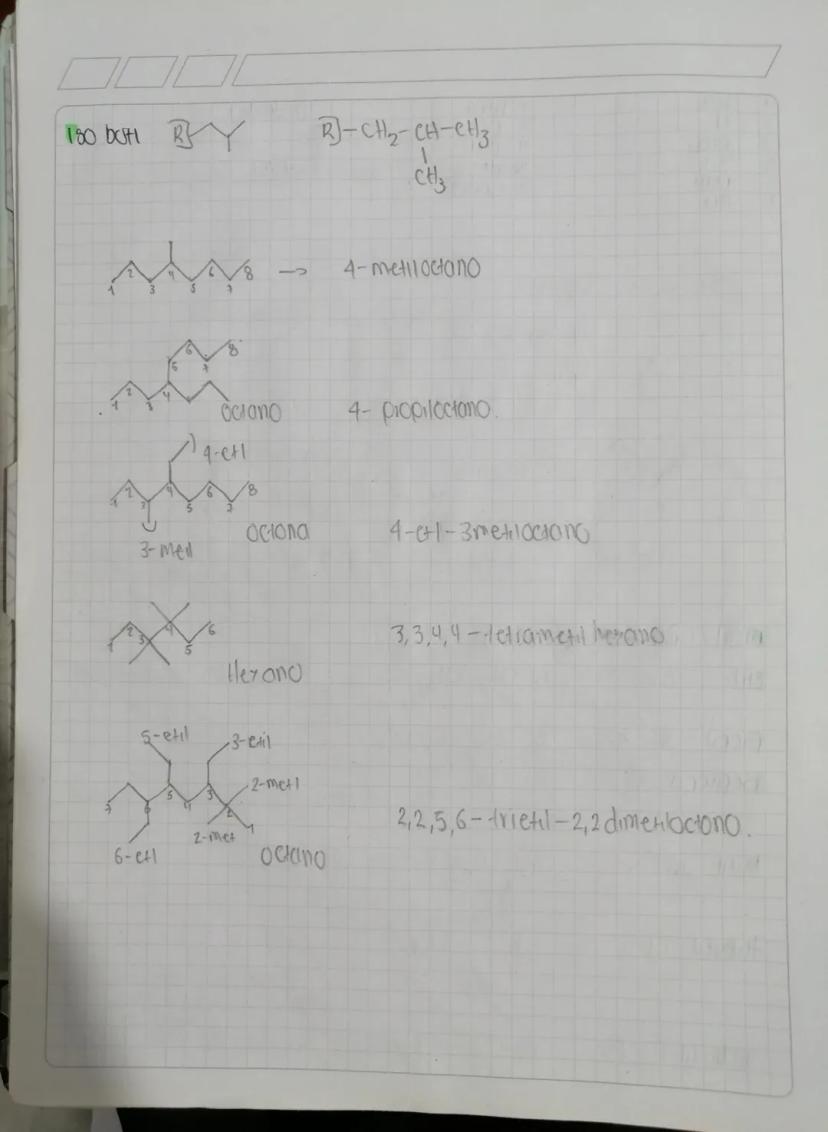 Iso butil R]
R]-CH2-CH-CH3
CH3
1 2 3 4 5 6 7 8 → 4-metiloctano
1 2 3 4 5 6 7 8
octano 4- propiloctano.
4-etil
1 2 3 4 5 6 7 8
3-metil octano 4-etil-3metiloctano
1 2 3 4 5 6 3,3,4,4-tetrametil hexano
Hexano
5-etil 3-etil
2-metil
7 6 5 4 3 2 1 2,2,5,6-trietil-2,2dimetiloctano.
2-met
6-etil octano